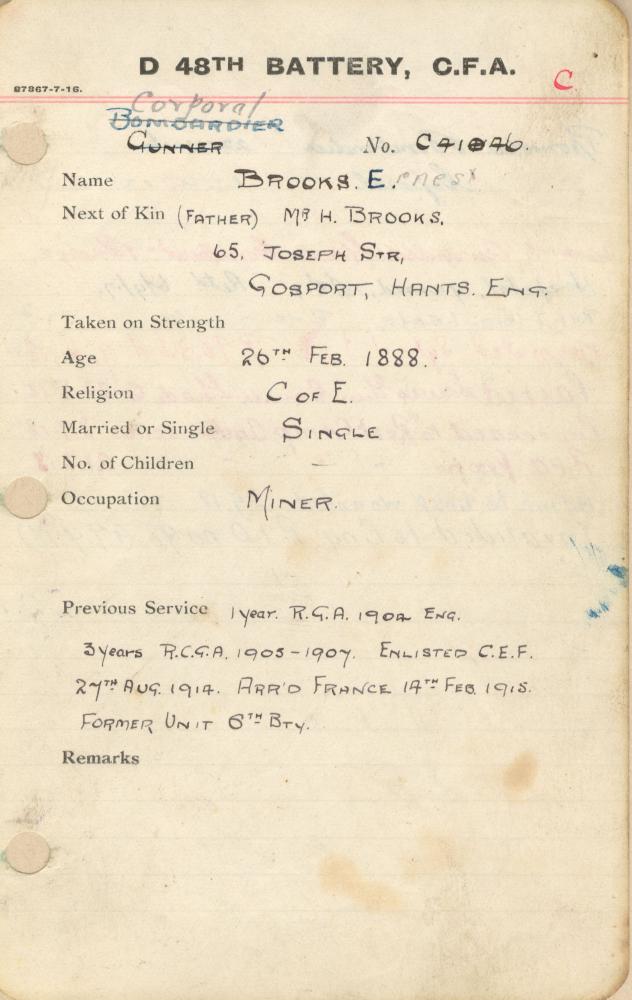 D 48TH BATTERY, C.F.A.
C
87867-7-16.
Corporal
BOMBARDIER
GUNNER No. C41046.
Name BROOKS. E.rnest
Next of Kin (FATHER) MR H. BROOKS,
65, JOSEPH STR,
GOSPORT, HANTS. ENG.
Taken on Strength
Age 26TH FEB. 1888.
Religion C OF E.
Married or Single SINGLE
No. of Children –
Occupation MINER.
Previous Service 1 year. R.G.A. 1904 ENG.
3 years R.C.G.A. 1905-1907. ENLISTED C.E.F.
27TH AUG. 1914. ARR'D FRANCE 14TH FEB. 1915.
FORMER UNIT 6TH BTY.
Remarks